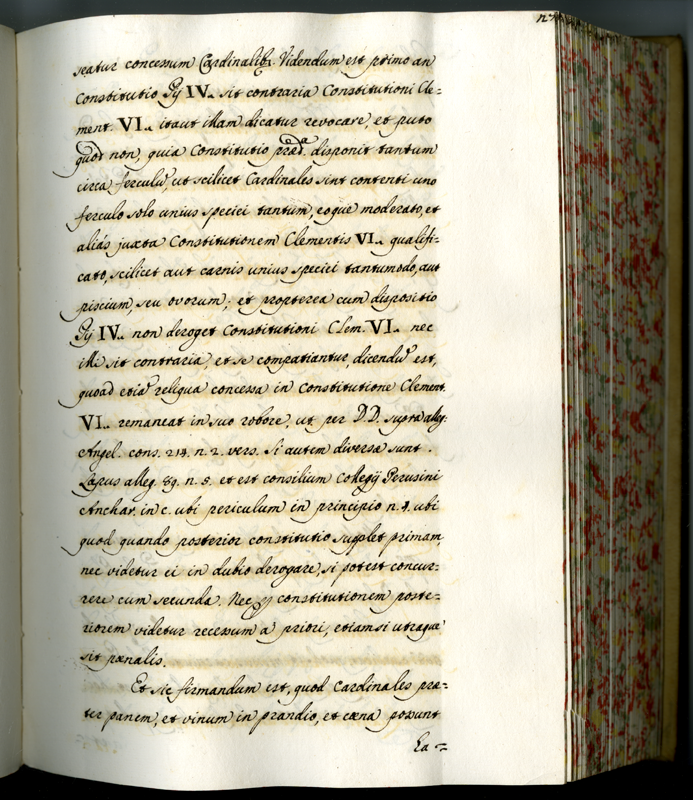 seatur concessum Cardinalib9. Videndum est primo an
Constitutio Pij IV. sit contraria Constitutioni Cle=
ment. VI. itaut illam dicatur revocare, et puto
quod non, quia Constitutio præd.a disponit tantum
circa ferculũ, ut scilicet Cardinales sint contenti uno
ferculo solo unius speciei tantum, eoque moderato, et
aliàs juxta Constitutionem Clementis VI. qualifi=
cato, scilicet aut carnis unius speciei tantumodo, aut
piscium, seu ovorum; et propterea cum dispositio
Pij IV. non deroget Constitutioni Clem. VI. nec
illi sit contraria, et se compatiantur, dicendũ est,
quoad etiã reliqua concessa in Constitutione Clement.
VI. remaneat in suo robore, ut per D.D. supra alleg.
Angel. cons. 214. n. 2. vers. Si autem diversa sunt.
Lapus alleg. 89. n. 5. et est consilium Collegij Perusini
Anchar. in c. ubi periculum in principio n. 4. ubi
quod quando posterior constitutio suplet primam,
nec videtur ei in dubio derogare, si potest concur=
rere cum secunda. Nec constitutionem poste=
riorem videtur recessum a priori, etiamsi utraque
sit pœnalis.
Et sic firmandum est, quod Cardinales præ=
ter panem, et vinum in prandio, et cæna possunt
Ea =